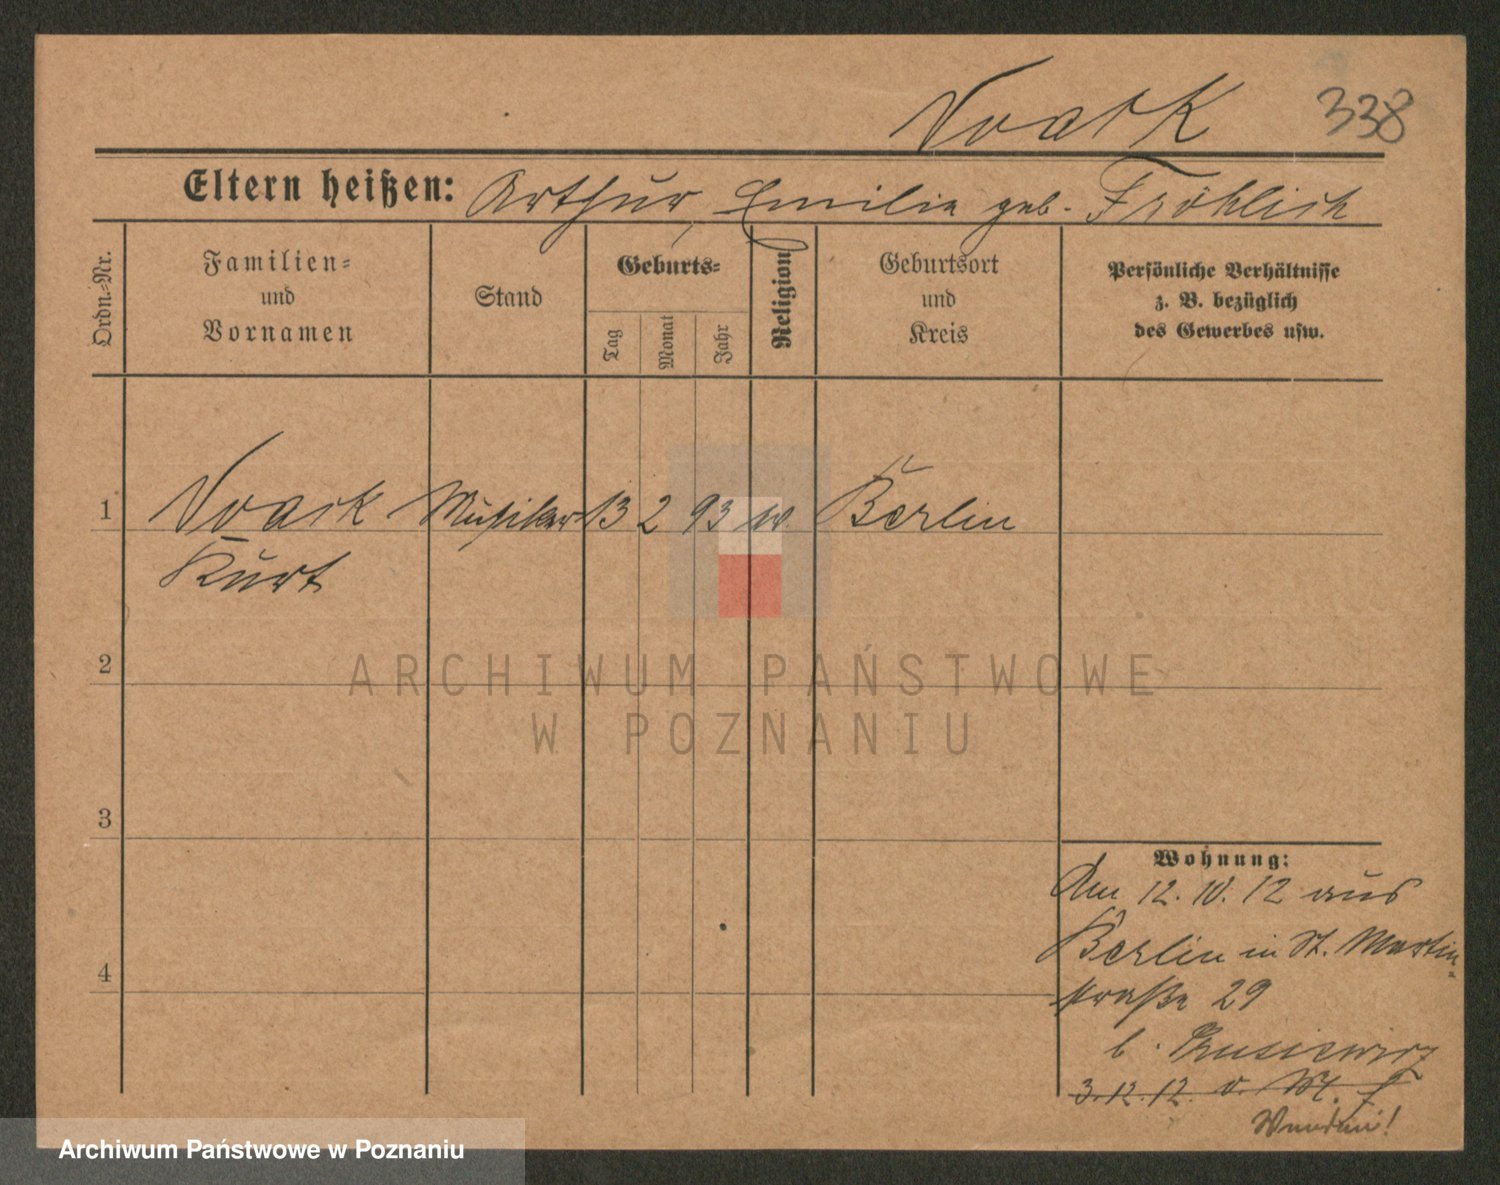 Noack 338
Eltern heißen: Arthur, Emilie geb. Fröhlich
Ordn.-Nr.
Familien-
und
Vornamen
Stand
Geburts-
Tag
Monat
Jahr
Religion
Geburtsort
und
Kreis
Persönliche Verhältnisse
z. B. bezüglich
des Gewerbes usw.
1 Noack Musiker 13 2 93 Berlin
Kurt
2
ARCHIWUM PAŃSTWOWE
W POZNANIU
3
Wohnung:
Am 12. 10. 12 aus
Berlin in St. Martin-
4
straße 29
b.
3. 12. 12. v.
Archiwum Państwowe w Poznaniu